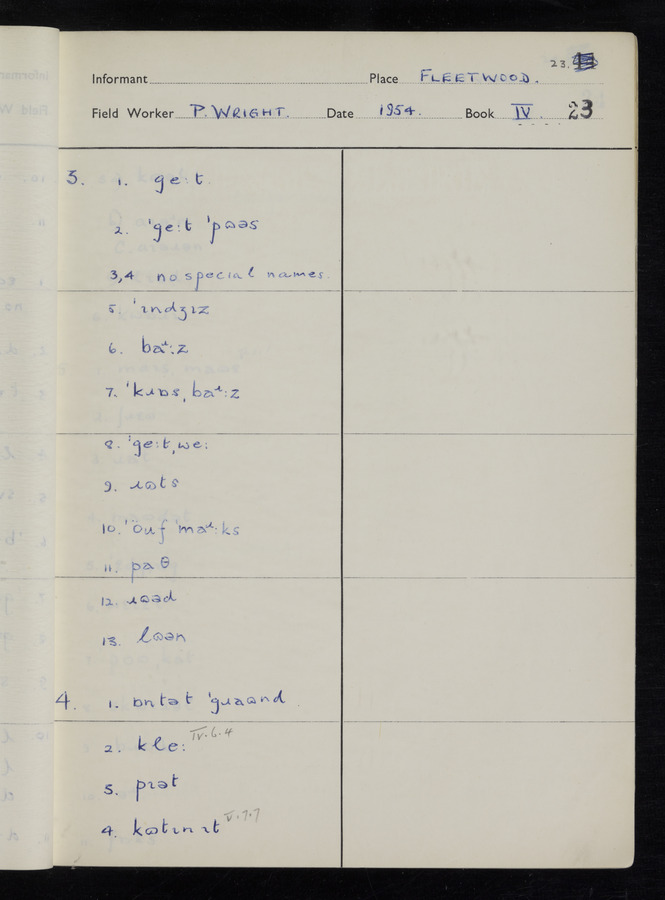 23.
Informant Place FLEETWOOD.
Field Worker P. WRIGHT. Date 1954. Book IV 23
3. 1. ge:t
2. ˈge:t ˈpɷəs
3,4 no special names.
5. ˈɪndʒɪz
6. baɹ:z
7. ˈkɹɒsˌbaɹ:z
8. ˈge:tˌwe:
9. ɹɷts
10. ˈöuf ˈmaɹ:ks
11. paθ
12. ɹɷəd
13. lɷən
4. 1. ɒntət ˈgɹaɷnd
2. kle: IV.6.4
3. pɪət
4. kɷtɪn ɪt V.7.7